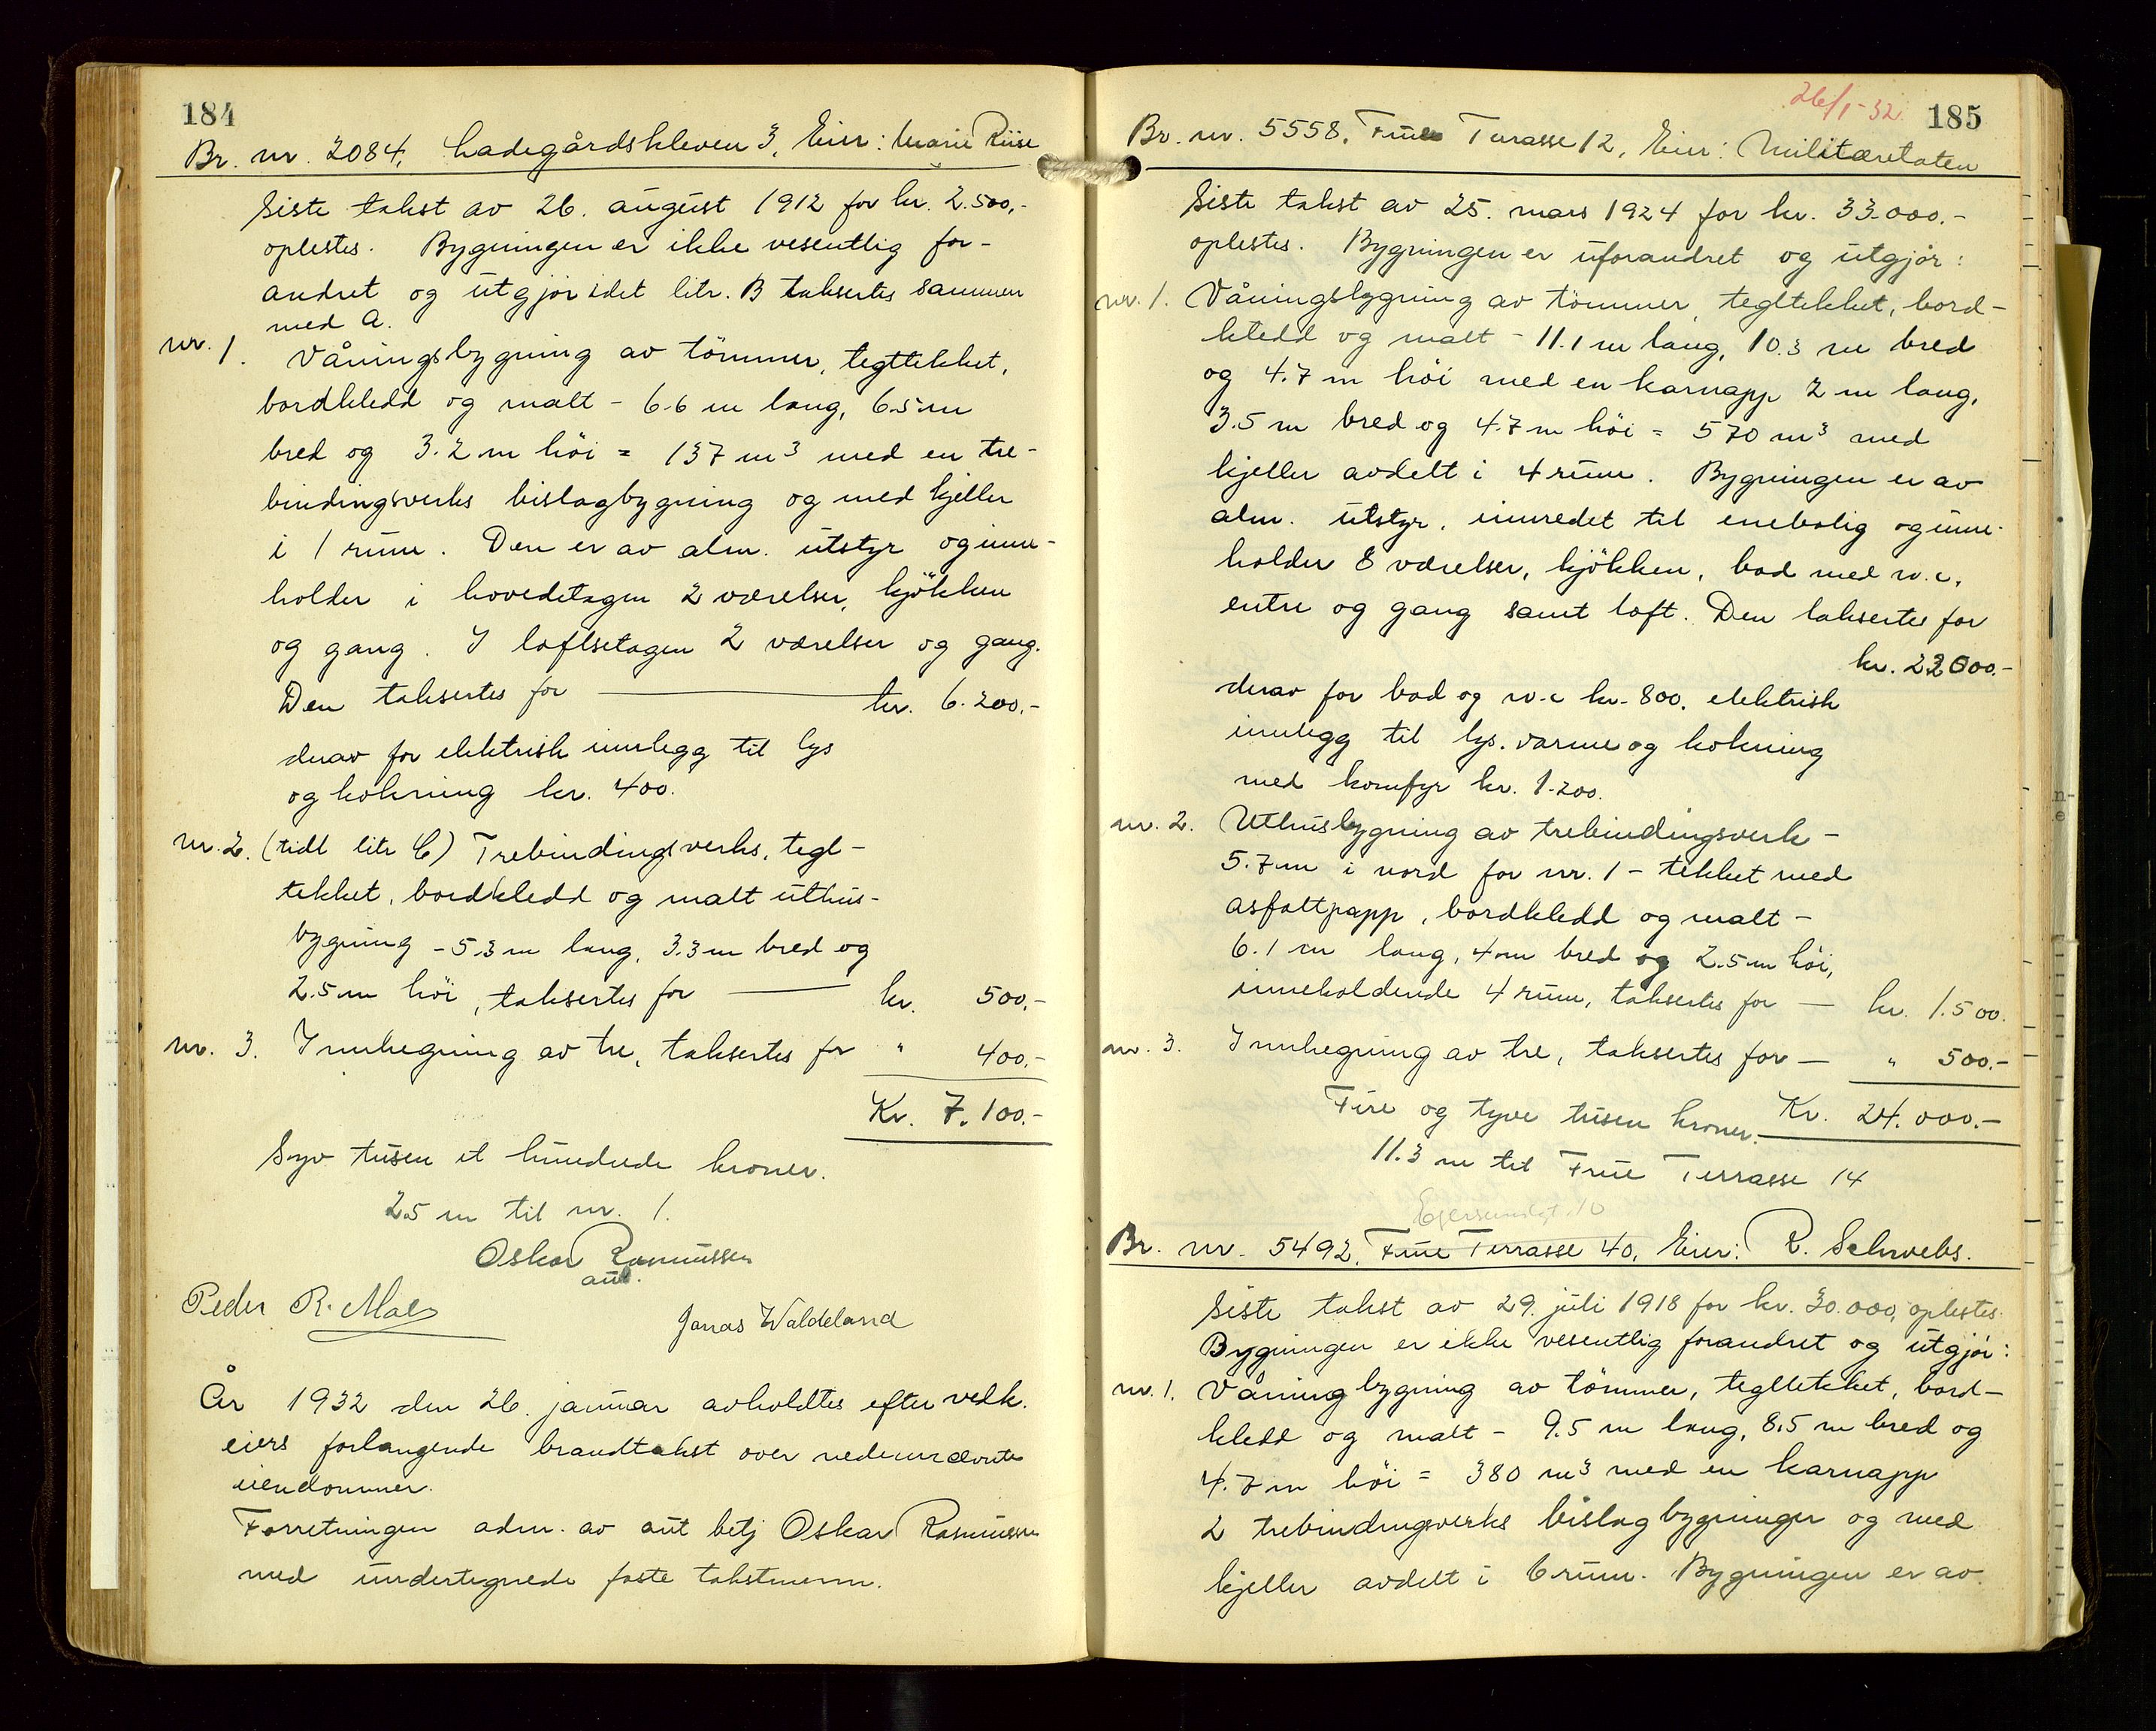 184
Br. nr. 2084, Ladegårdskleven 3, Eier: Marie Riise
Siste takst av 26. august 1912 for kr. 2.500,-
oplestes. Bygningen er ikke vesentlig for-
andret og utgjör idet litr. B taksertes sammen
med A.
nr. 1. Våningsbygning av tömmer, tegltekket,
bordkledd og malt - 6.6 m lang, 6.5 m
bred og 3.2 m höi = 137 m³ med en tre-
bindingsverks bislagbygning og med kjeller
i 1 rum. Den er av alm. utstyr og inne-
holder i hovedetagen 2 værelser, kjökken
og gang. I loftsetagen 2 værelser og gang.
Den taksertes for kr. 6.200.-
derav for elektrisk innlegg til lys
og kokning kr. 400.
nr. 2. (tidl litr C) Trebindingsverks, tegl-
tekket, bordkledd og malt uthus-
bygning - 5.3 m lang, 3.3 m bred og
2.5 m höi, taksertes for kr. 500.-
nr. 3. Innhegning av tre, taksertes for " 400.-
Kr. 7.100.-
Syv tusen et hundrede kroner.
25 m til nr. 1.
Oskar Rasmussen
aut.
Peder R. Mæle
Jonas Waldeland
År 1932 den 26. januar avholdtes efter vedk.
eiers forlangende brandtakst over nedennævnte
eiendommer.
Forretningen adm. av aut betj Oskar Rasmussen
med undertegnede faste takstmenn.
26/1-32 185
Br. nr. 5558, Frue Terasse 12, Eier: Militæretaten
Siste takst av 25. mars 1924 for kr. 33.000.-
oplestes. Bygningen er uforandret og utgjör:
nr. 1. Våningsbygning av tömmer, tegltekket, bord-
kledd og malt - 11.1 m lang, 10.3 m bred
og 4.7 m höi med en karnapp 2 m lang,
3.5 m bred og 4.7 m höi = 570 m³ med
kjeller avdelt i 4 rum. Bygningen er av
alm. utstyr, innredet til enebolig og inne-
holder 8 værelser, kjökken, bad med w.c,
entre og gang samt loft. Den taksertes for
kr. 22000.-
derav for bad og w.c kr. 800, elektrisk
innlegg til lys. varme og kokning
med komfyr kr. 1.200.
nr. 2. Uthusbygning av trebindingsverk -
5.7 m i nord for nr. 1 - tekket med
asfaltpapp, bordkledd og malt -
6.1 m lang, 4 m bred og 2.5 m höi,
inneholdende 4 rum, taksertes for - kr. 1.500.
nr. 3. Innhegning av tre, taksertes for - " 500.-
Fire og tyve tusen kroner. Kr. 24.000.-
11.3 m til Frue Terrasse 14
Egersundgt. 10
Br. nr. 5492, Frue Terrasse 40, Eier: R. Schwebs.
Siste takst av 29. juli 1918 for kr. 30.000, oplestes.
Bygningen er ikke vesentlig forandret og utgjör:
nr. 1. Våningbygning av tömmer, tegltekket, bord-
kledd og malt - 9.5 m lang, 8.5 m bred og
4.7 m höi = 380 m³ med en karnapp
2 trebindingsverks bislagbygninger og med
kjeller avdelt i 6 rum. Bygningen er av